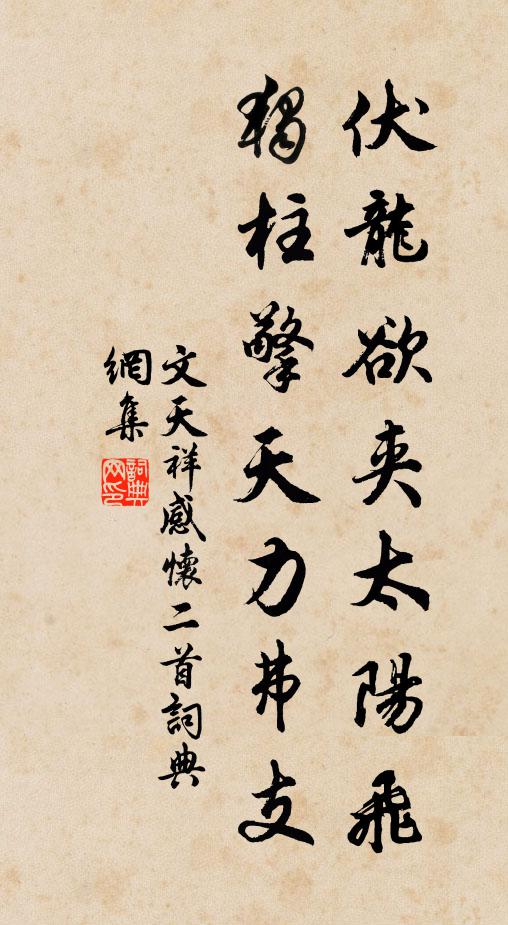 伏龍欲夹太陽飛
獨柱擎天力弗支
文天祥感懷二首詞典
網集
詞典
网印